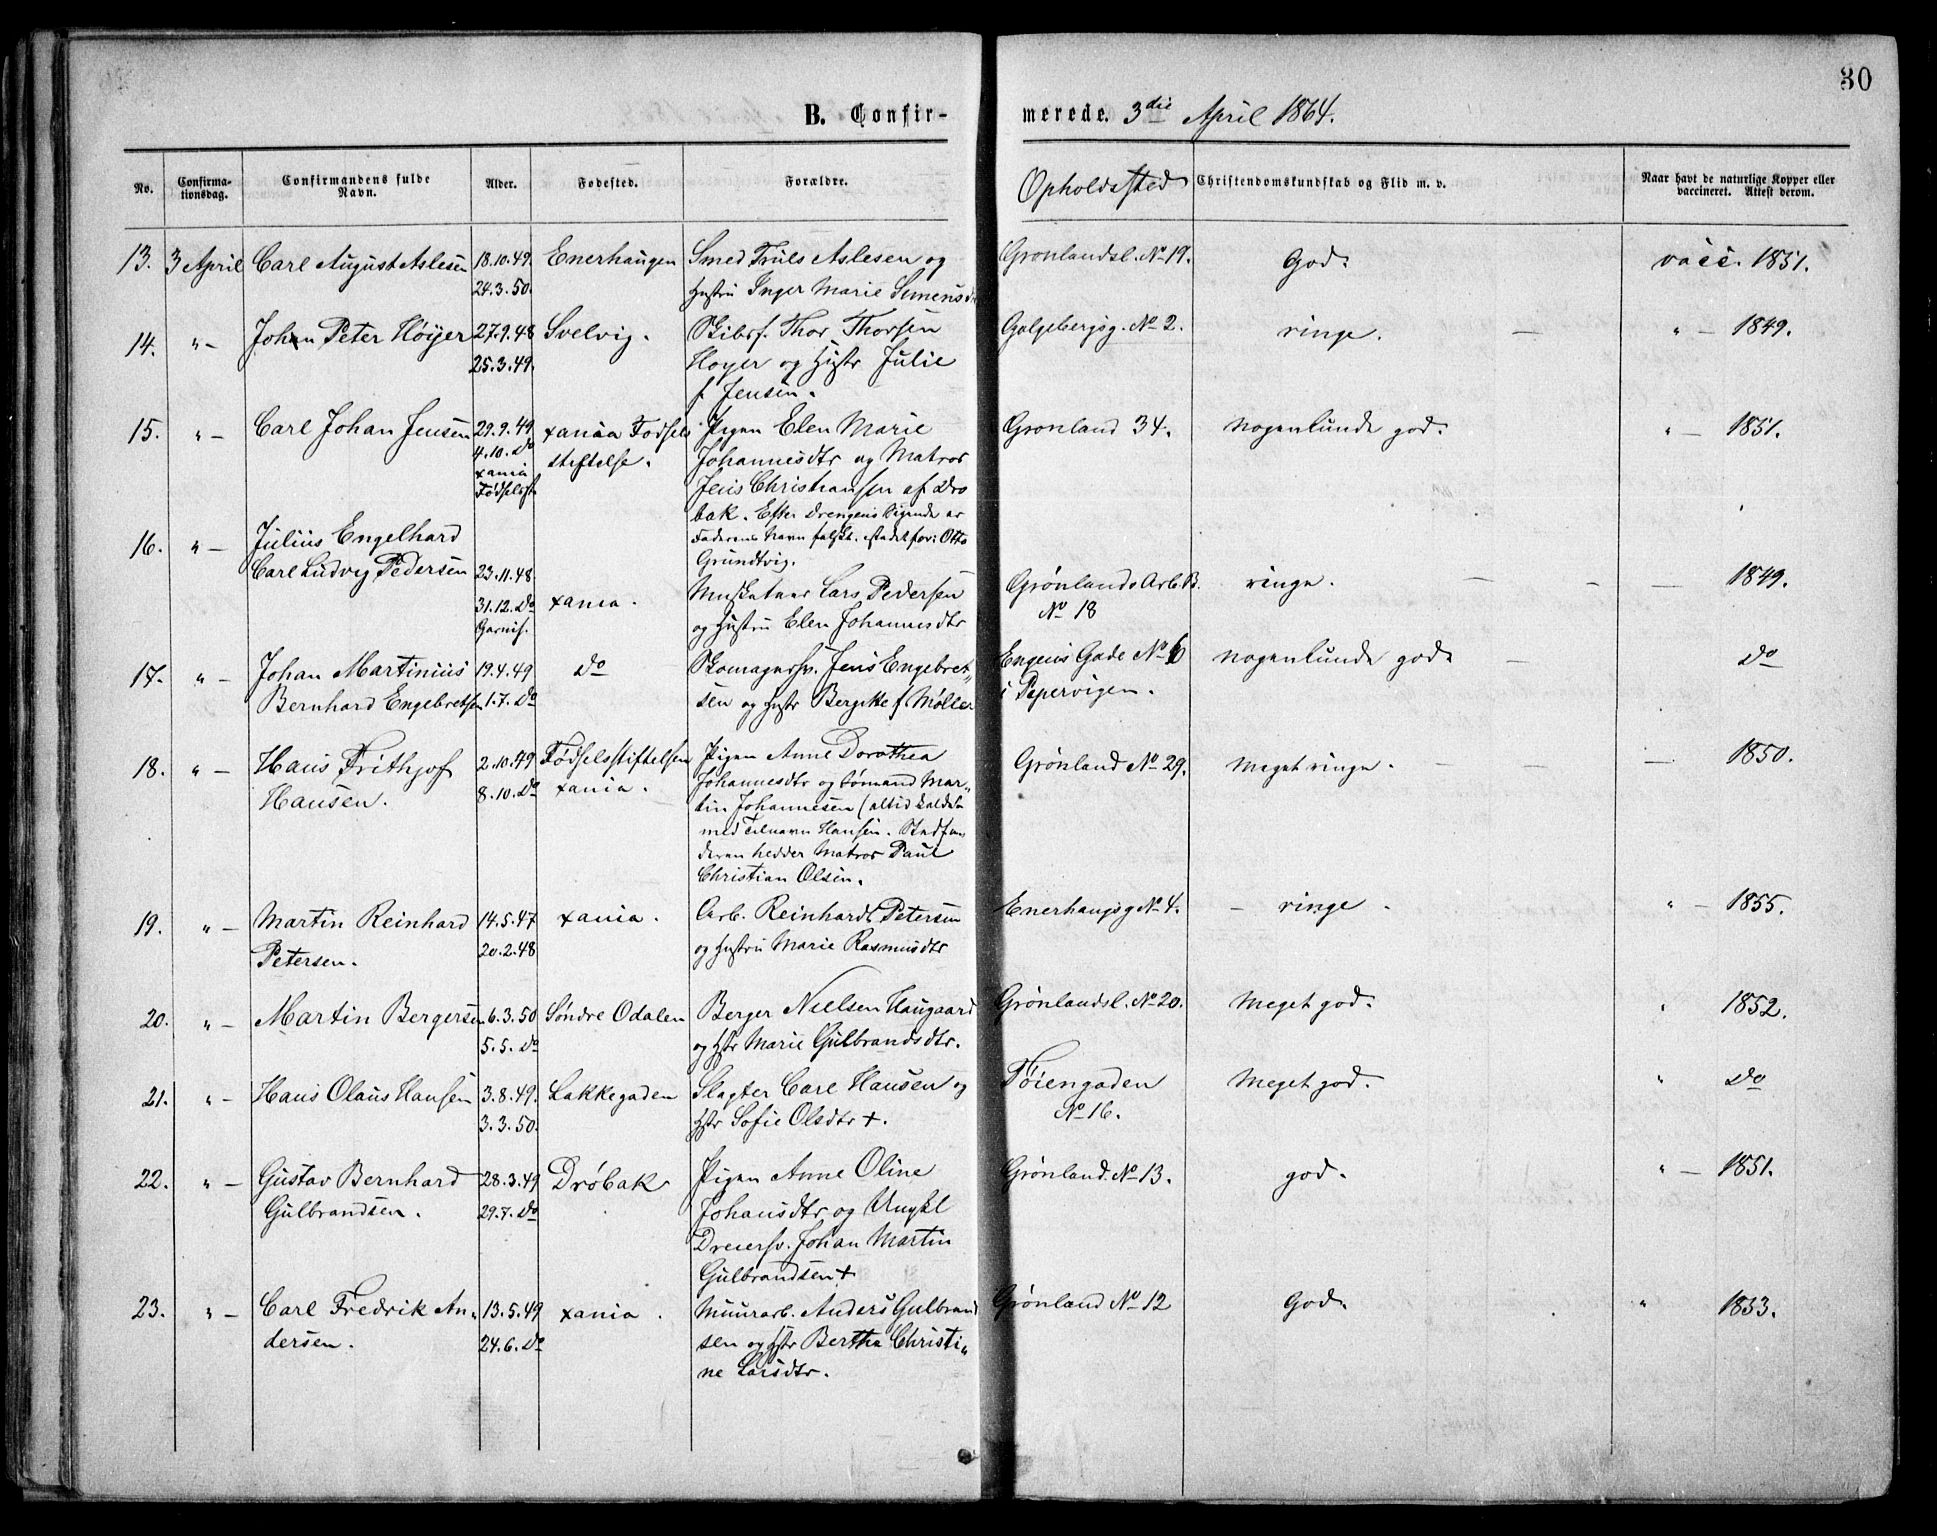 30
B. Confir-
merede. 3die April 1864.
No.
Confirma-
tionsdag.
Confirmandens fulde
Navn.
Alder.
Fødested.
Forældre.
Opholdssted
Christendomskundskab og Flid m. v.
Naar havt de naturlige Kopper eller
vaccineret. Attest derom.
13. 3 April Carl August Aslesen 18.10.49. Enerhaugen Smed Truls Aslesen og Grønlandsl. No 19. God. vacc. 1851.
24.3.50. Hustru Inger Marie
14. " — Johan Peter Høyer 27.9.48 Svelvig. Skibsf. Thor Thorsen Galgebergsg. No 2. ringe. — " — 1849.
25.3.49. Hoyer og Hustr Julie
f. Jensen.
15. " — Carl Johan Jensen 29.9.49 xania Fodsels Pigen Elen Marie Gronland 34. nogenlunde god. " — 1851.
4.10. Do stiftelse. Johannesdtr og Matros
xania Jens Christiansen af Drø
Fødselsst. bak. Efter Drengens Sigende er
16. " — Julius Engelhard Faderens Navn falskt. istedetfor: Otto
Grundtvig.
Carl Ludvig Pedersen 23.11.48. Musketeer Lars Pedersen Grønlands Arb. B. ringe. — — — 1849.
31.12. Do xania. og Hustru Elen Johannesdtr No 18
Garnis.
17. " — Johan Martinius 19.4.49 Do Skomagersv. Jens Engebret„ Engens Gade No 6 nogenlunde god. — Do
Bernhard Engebretsen 1.7. Do sen og Hustr f Møller i Pipervigen.
18. " — Hans Frithjof 2.10.49 Fødselsstiftelsen Pigen Anne Dorothea Grønland No 29. Meget ringe. — — — 1850.
Hansen. 8.10. Do xania. Johannesdtr og Sømand Mar„
tin Johannesen (altid kaldet
med Tilnavn Hansen. Stedfa„
deren hedder Matros Paul
Christian Olsen.
19. " — Martin Reinhard 14.5.47 xania. Arb. Reinhardt Petersen Enerhaugsg No 4. — ringe. " — 1855.
Petersen. 20.2.48 og Hustru Marie Rasmusdtr
20. " — Martin Bergersen 6.3.50 Søndre Odalen Berger Nielsen Haugaard Grønlandsl. No 20. Meget god. " 1852.
5.5. Do og Hstr Marie Gulbrandsdtr.
21. " — Hans Olaus Hansen 3.8.49. Lakkegaden Slagter Carl Hansen og Tøiengaden Meget god. " Do
3.3.50. Hstr Sofie Olsdtr +. No 16.
22. " — Gustav Bernhard 28.3.49 Drøbak Pigen Anne Oline Grønland No 13. god. " — 1851.
Gulbrandsen. 29.7. Do Johansdtr og Ungkl
Dreiersv. Johan Martin
Gulbrandsen +
23. " — Carl Fredrik An„ 13.5.49 xania. Muurarb. Anders Gulbrand Grønland No 12 God. " 1853.
dersen. 24.6. Do sen og Hstr Berthe Christi„
ne Larsdtr.